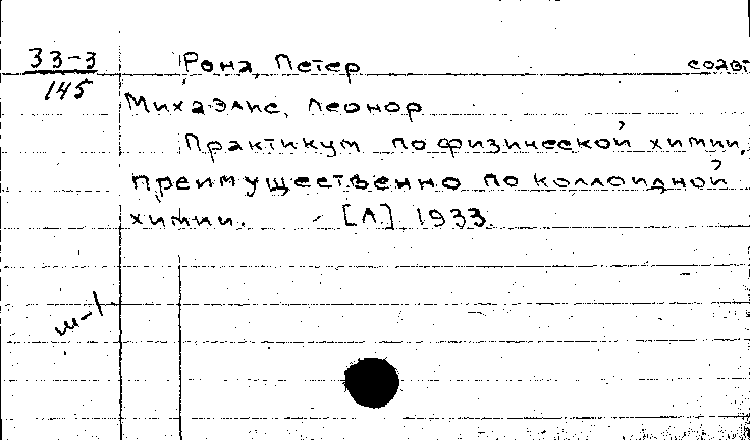 33-3
145
Рона, Петер соавт
Михаэлис, Леонор
Практикум по физической химии,
преимущественно по коллоидной
химии. - [Л] 1933.
ш-1